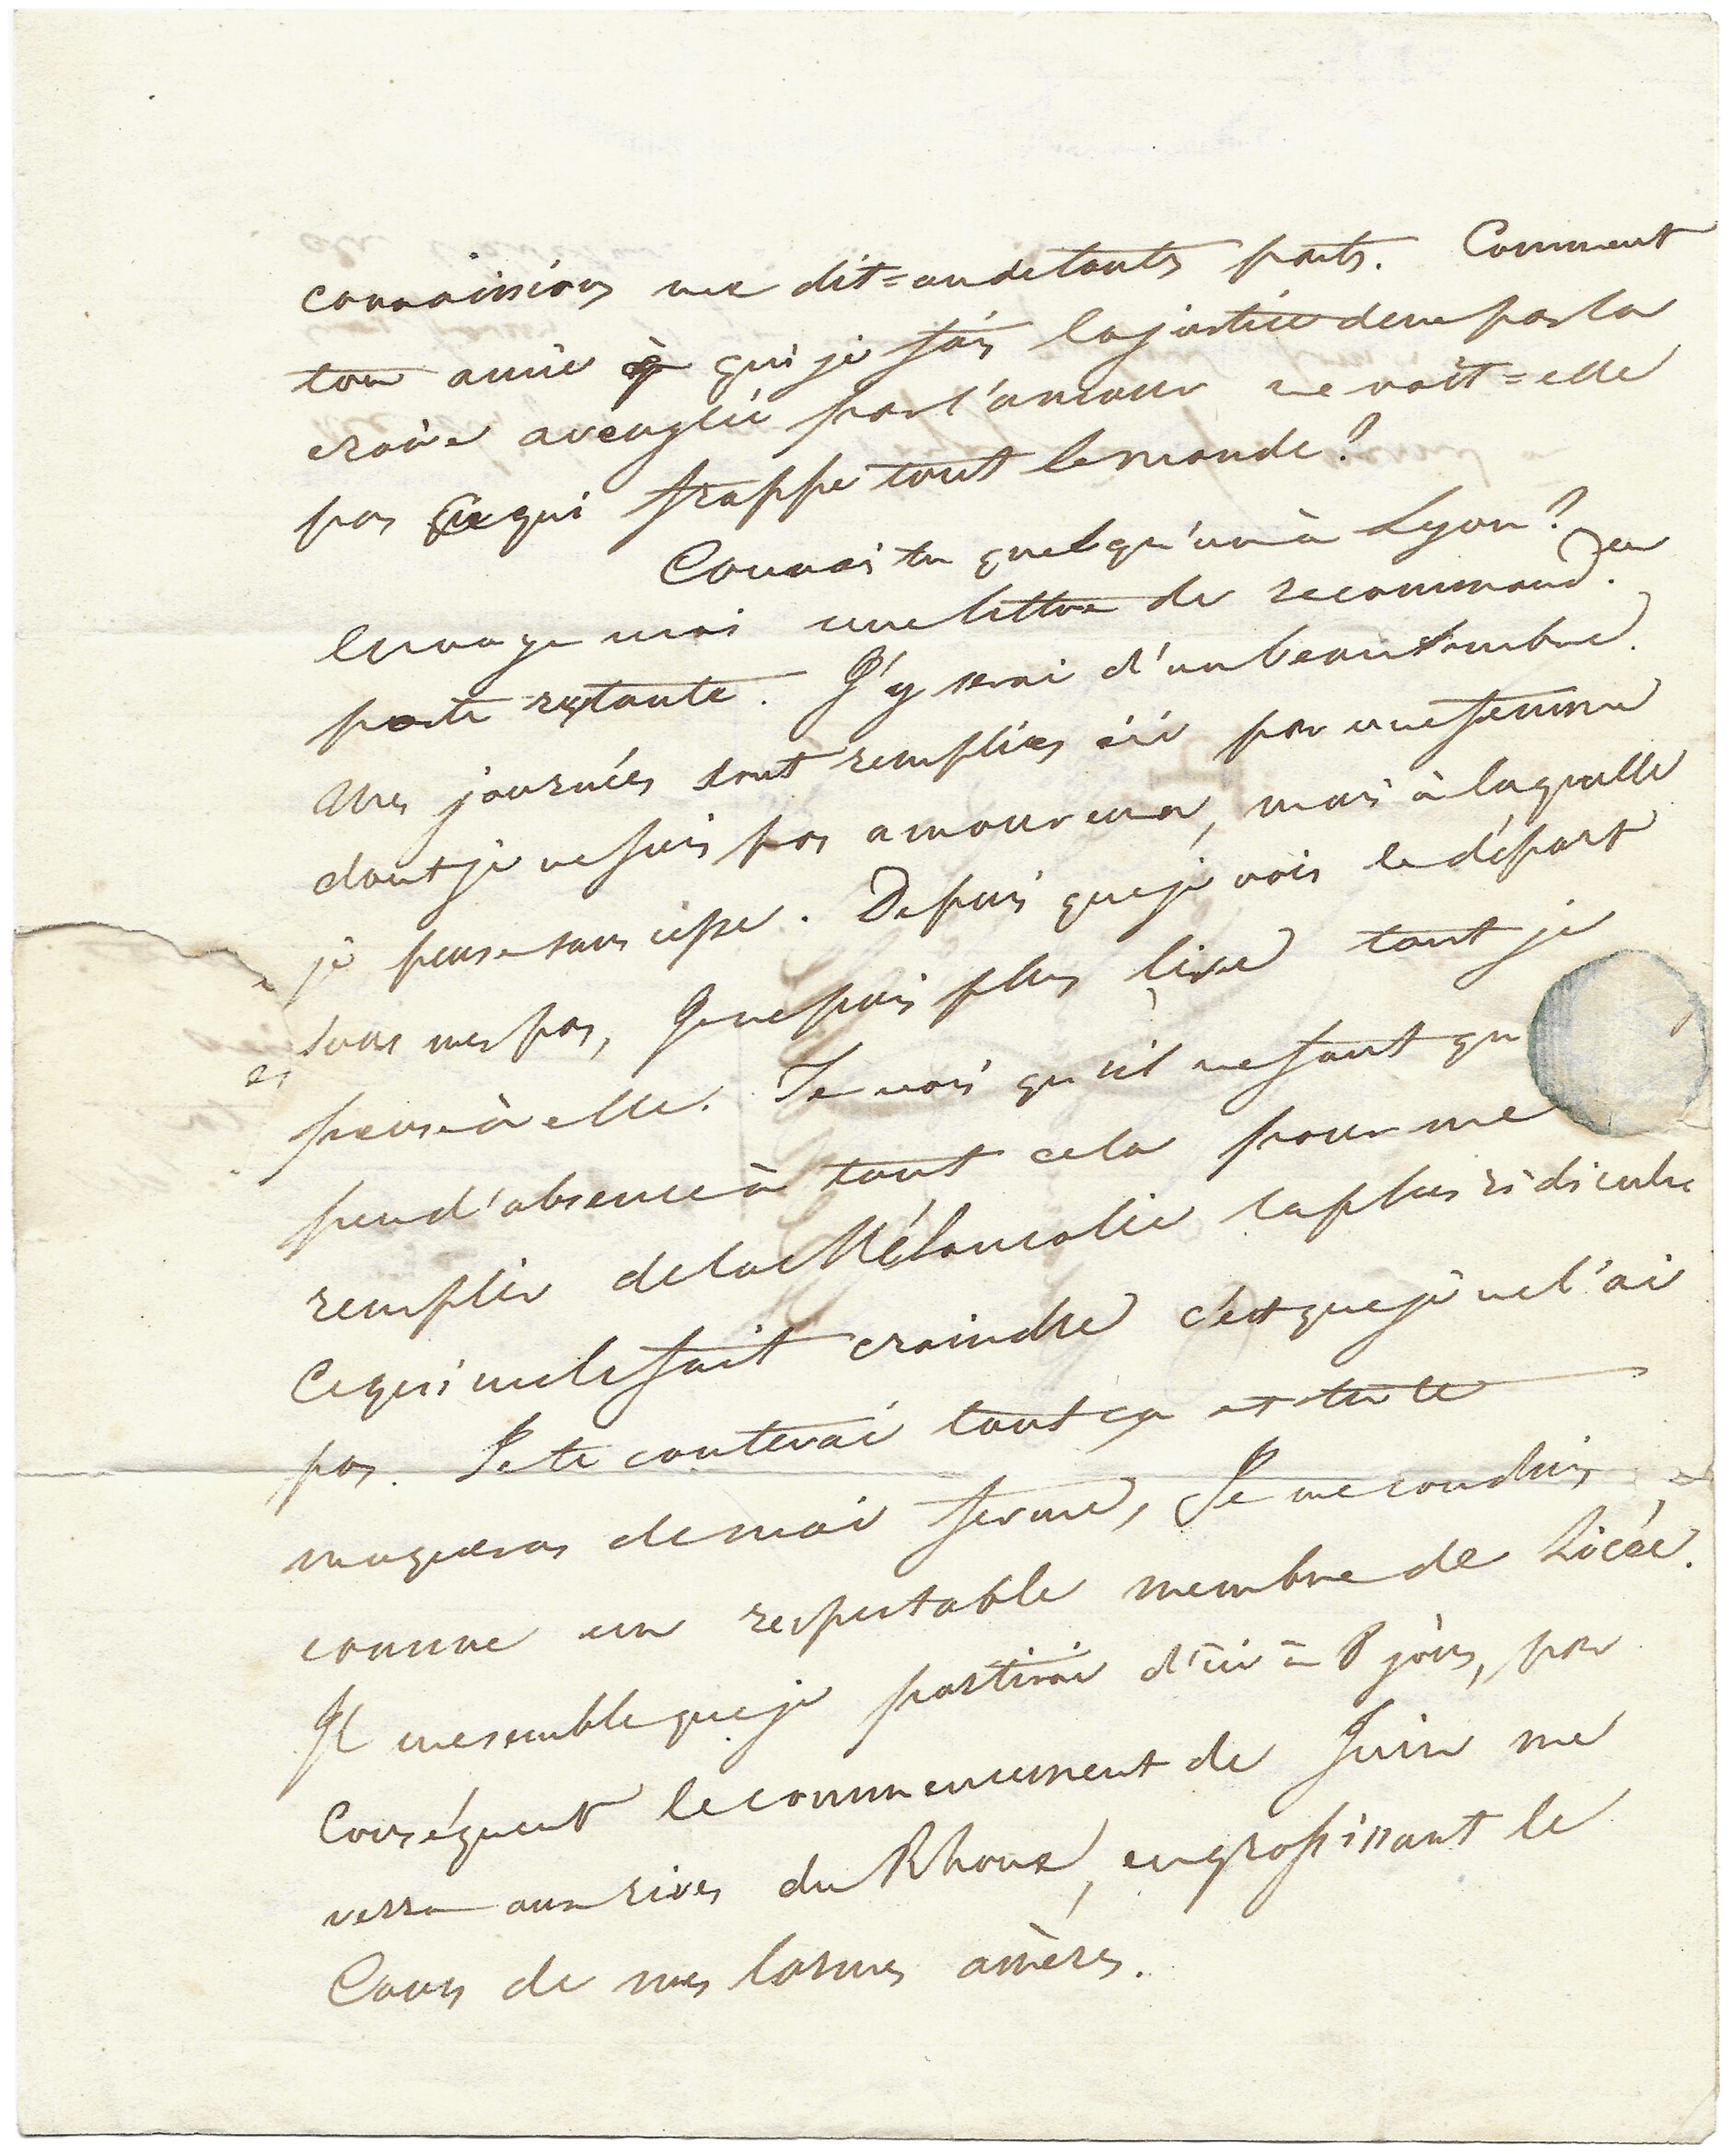 connaissions me dit=on de toutes parts. Comment
ton amie à qui je fais la justice de ne pas la
croire aveuglée par l'amour ne voit=elle
pas ce qui frappe tout le monde?
Connais tu quelqu'un à Lyon?
Envoye moi une lettre de recommand.on
poste restante. J'y serai d'un beau sombre.
Mes journées sont remplies ici par une femme
dont je ne suis pas amoureux, mais à laquelle
je pense sans cesse. Depuis que je vois le départ
sous mes pas, je ne puis plus lire tant je
pense à elle. Je vois qu'il ne faut qu
peu d'absence à tout cela pour me
remplir de la Mélancolie la plus ridicule
Ce qui me le fait craindre c'est que je ne l'ai
pas. Je te conterai tout ça et tu te
moqueras de moi ferme, Je me conduis
comme un respectable membre de Licée.
Il me semble que je partirai d'ici à 8 jours, par
Conséquent le commencement de Juin me
verra aux rives du Rhone, en grossissant le
Cours de mes larmes amères.